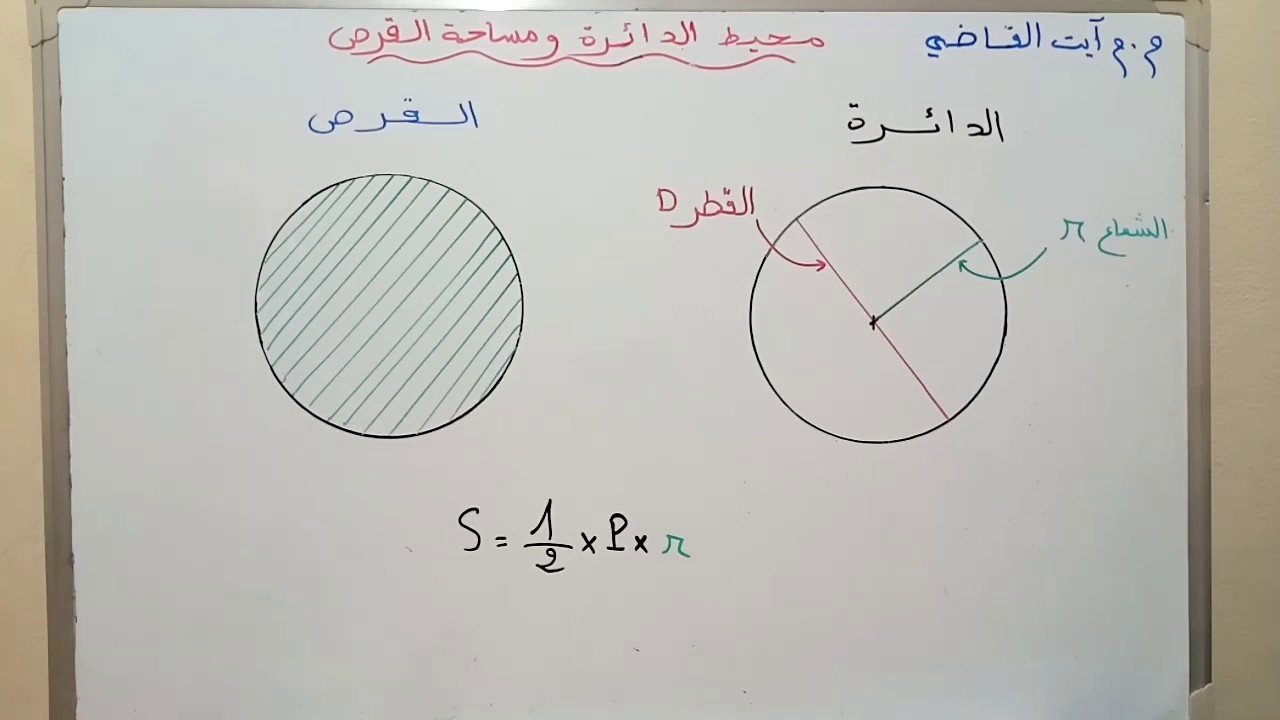 م.م آيت القاضي
محيط الدائرة ومساحة القرص
الدائرة
القرص
القطر D
الشعاع r
S = 1/2 x P x r